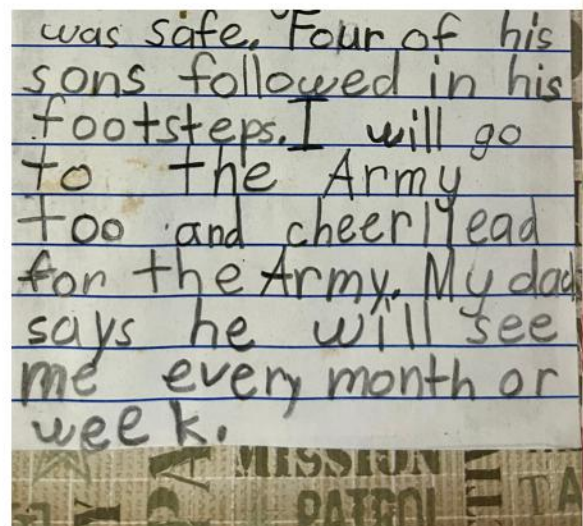 was safe. Four of his
sons followed in his
footsteps. I will go
to the Army
too and cheerllead
for the Army. My dad
says he will see
me every month or
week.
MISSION
PATROL
TA